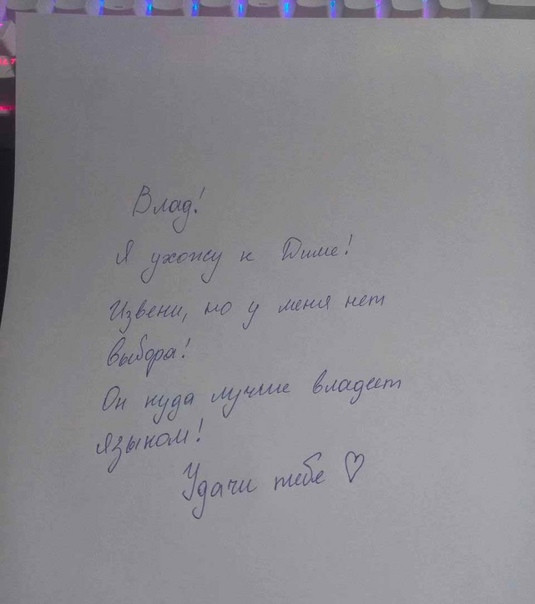 Влад!
Я ухожу к Диме!
Извени, но у меня нет
выбора!
Он куда лучше владеет
языком!
Удачи тебе ♡